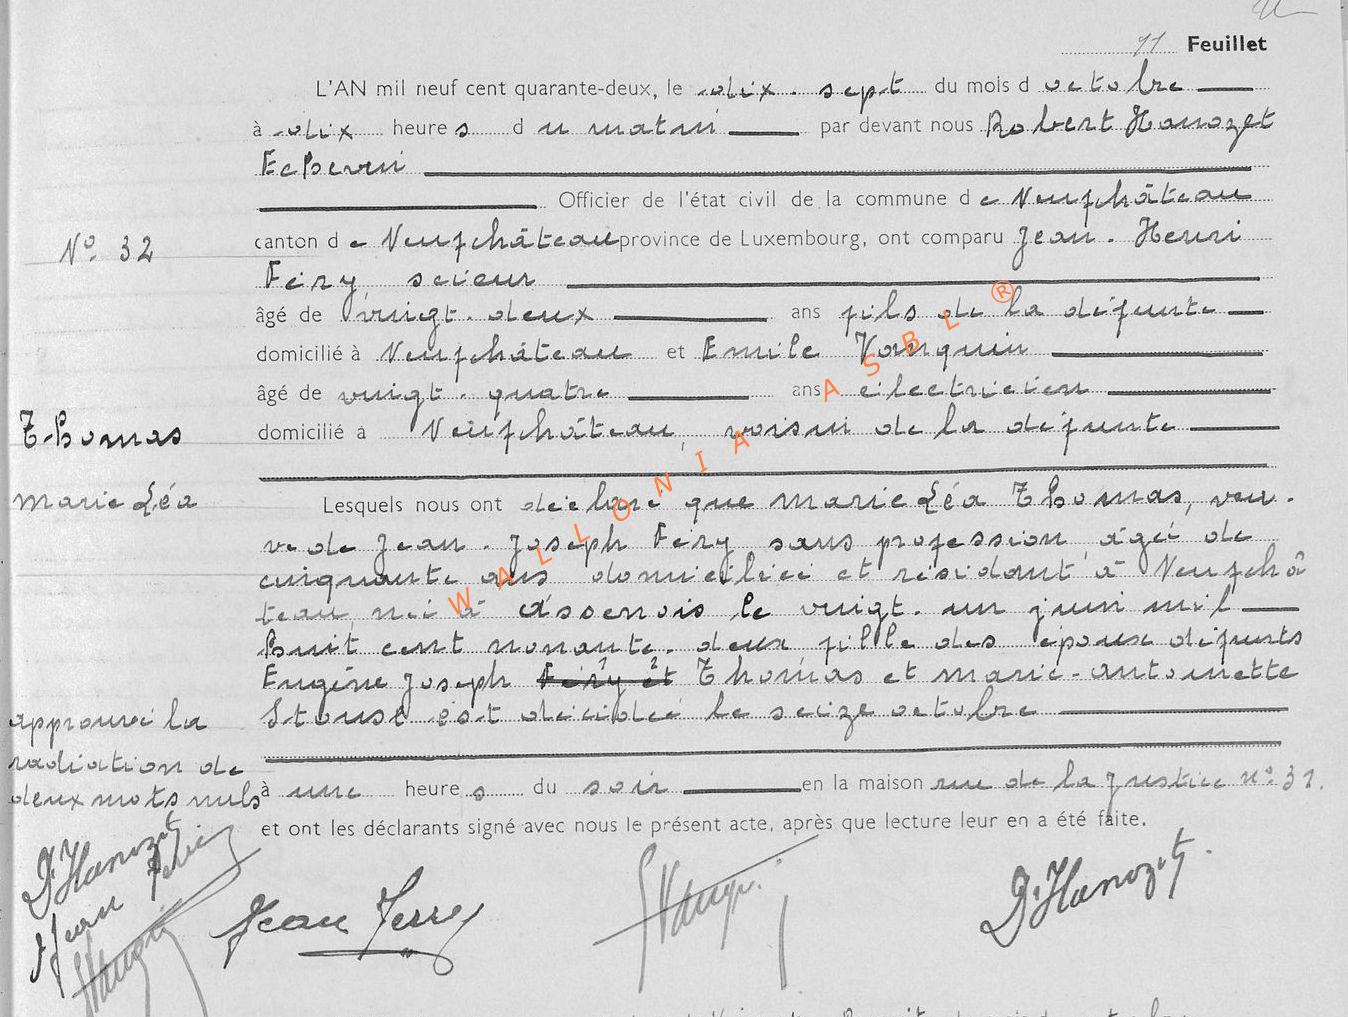 11 Feuillet
L'AN mil neuf cent quarante-deux, le dix-sept du mois d octobre
à dix heures du matin par devant nous Robert Hanozet
Echevin
Officier de l'état civil de la commune de Neufchâteau
N° 32
canton de Neufchâteau province de Luxembourg, ont comparu Jean-Henri
Féry, scieur
âgé de vingt-deux ans fils de la défunte
domicilié à Neufchâteau et Emile Vanquin
âgé de vingt-quatre ans électricien
Thomas
domicilié à Neufchâteau, voisin de la défunte
Marie Léa
Lesquels nous ont déclaré que Marie Léa Thomas, veu-
ve de Jean-Joseph Féry, sans profession, âgée de
cinquante ans domiciliée et résidant à Neufchâ
teau, née à Assenois le vingt-un juin mil
huit cent nonante-deux fille des époux défunts
Eugène Joseph Féry et Thomas et Marie-Antoinette
est décédée le seize octobre
approuvé la
radiation de
deux mots nuls
à une heures du soir en la maison rue de la Justice n° 31.
et ont les déclarants signé avec nous le présent acte, après que lecture leur en a été faite.
Dr Hanozet
Jean
Jean Ferry
Dr Hanozet
WALLONIA ASBL ®